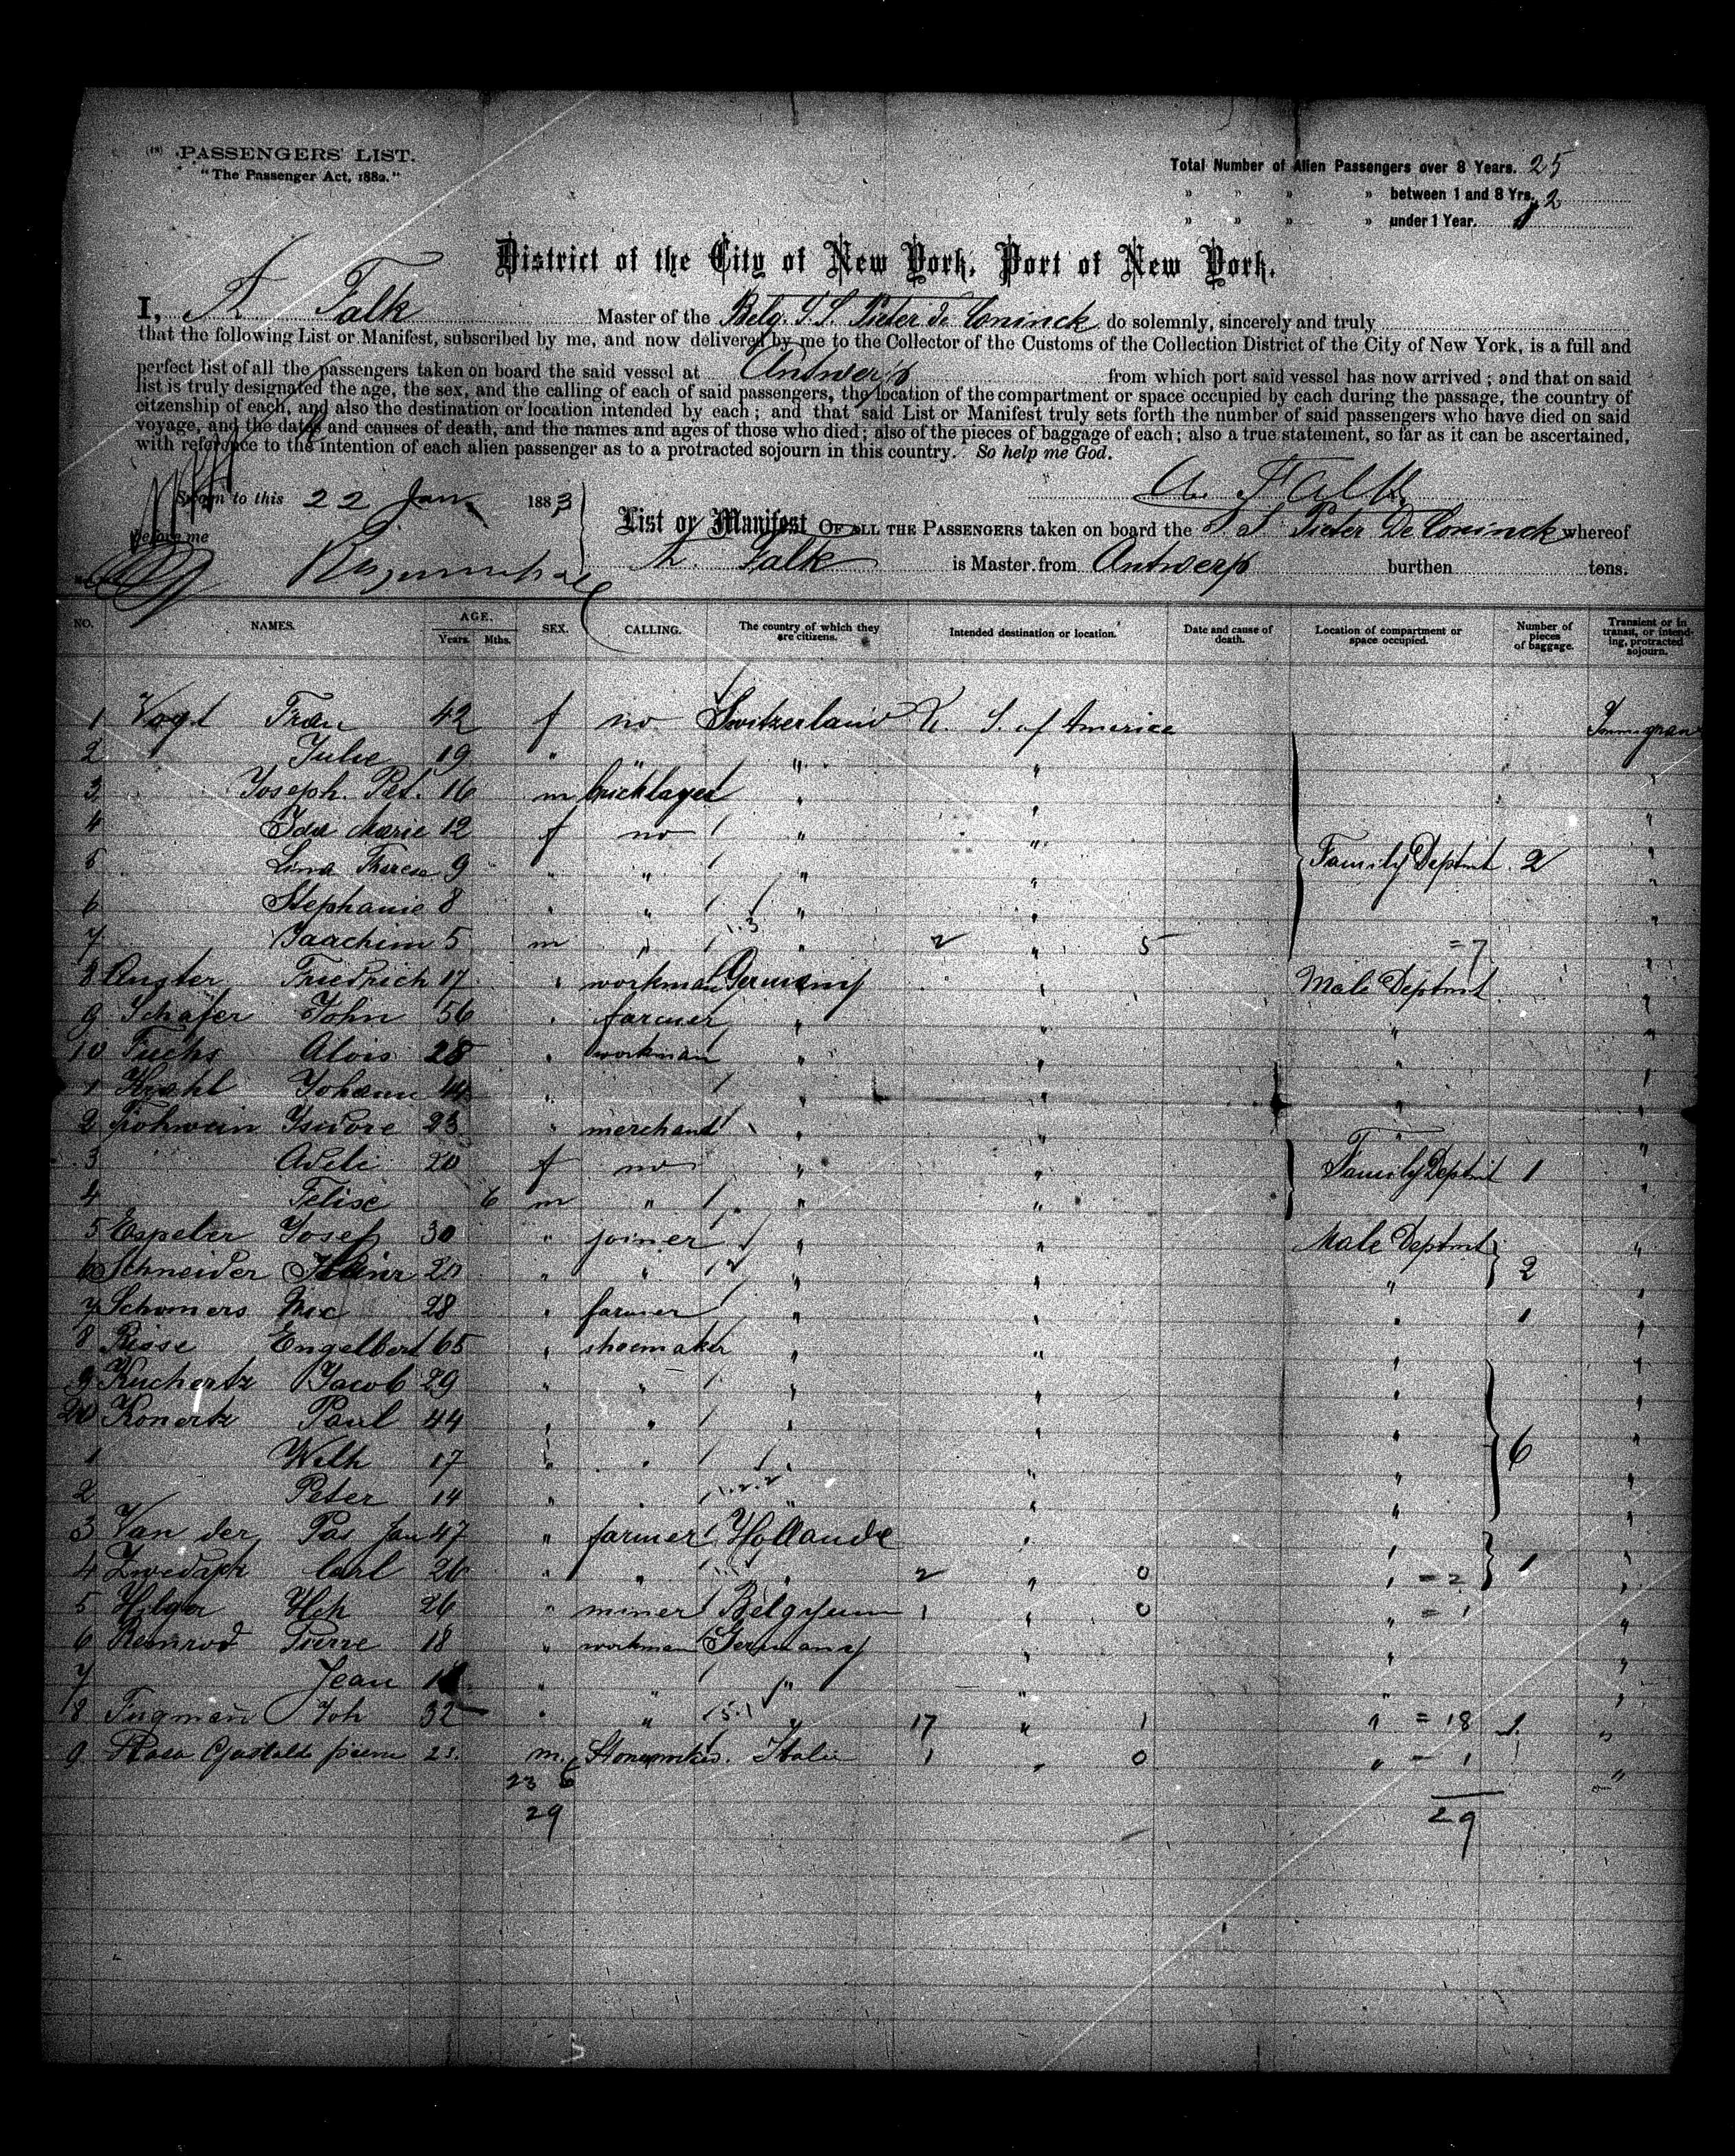 PASSENGERS' LIST.
"The Passenger Act, 1882."
Total Number of Alien Passengers over 8 Years. 25
" " " " between 1 and 8 Yrs. 2
" " " " under 1 Year.
District of the City of New York, Port of New York.
I, A Falk Master of the Belg. S.S. Pieter de Coninck do solemnly, sincerely and truly
that the following List or Manifest, subscribed by me, and now delivered by me to the Collector of the Customs of the Collection District of the City of New York, is a full and
perfect list of all the passengers taken on board the said vessel at Antwerp from which port said vessel has now arrived; and that on said
list is truly designated the age, the sex, and the calling of each of said passengers, the location of the compartment or space occupied by each during the passage, the country of
citzenship of each, and also the destination or location intended by each; and that said List or Manifest truly sets forth the number of said passengers who have died on said
voyage, and the dates and causes of death, and the names and ages of those who died; also of the pieces of baggage of each; also a true statement, so far as it can be ascertained,
with reference to the intention of each alien passenger as to a protracted sojourn in this country. So help me God.
A. Falk
Sworn to this 22 Jan 1883
before me
List or Manifest OF ALL THE PASSENGERS taken on board the S.S. Pieter De Coninck whereof
A. Falk is Master from Antwerp burthen tens.
NO. NAMES. AGE. Years. Mths. SEX. CALLING. The country of which they are citizens. Intended destination or location. Date and cause of death. Location of compartment or space occupied. Number of pieces of baggage. Transient or in transit, or intending, protracted sojourn.
1 Vogt Frau 42 f no Switzerland U. S. of America Immigran
2 Julie 19 " " " "
3 Joseph. Pet. 16 m bricklayer " "
4 Ida Marie 12 f no " "
5 Lina Therese 9 " " " " Family Deptmt. 2
6 Stephanie 8 " " " "
7 Jaachim 5 m " " 2 " 5 = 7
8 Angster Friedrich 17 " workman Germany " Male Deptmt
9 Schäfer John 56 " farmer " " "
10 Fuchs Alois 28 " workman " "
1 Johann " " " "
2 Isidore 23 " merchand " "
3 Adele 20 f no " " Family Deptmt 1
4 Felise 6 m " " "
5 Espeler Josef 30 " joiner " " Male Deptmt
6 Schneider Heinr 20 " " " " " 2
7 Schomers Nic 28 " farmer " " " 1
8 Risse Engelbert 65 " shoemaker " " "
9 Kuchertz Jacob 29 " " " " "
20 Konertz Paul 44 " " " " "
1 Wilh 17 " " " " " 6
2 Peter 14 " " " " "
3 Van der Pas Jan 47 " farmer Hollande " "
4 Carl 26 " " " 2 " 0 " = 2 1
5 Hilger Hch 26 " miner Belgyum 1 " 0 " = 1
6 Remrod Pierre 18 " workman Germany " "
7 Jean " " " " "
8 Tugman Joh 32 " " " 17 " 1 " = 18 1
9 pierre m. Stoneworker. Italie 1 " 0 " = 1
23 6
29 29